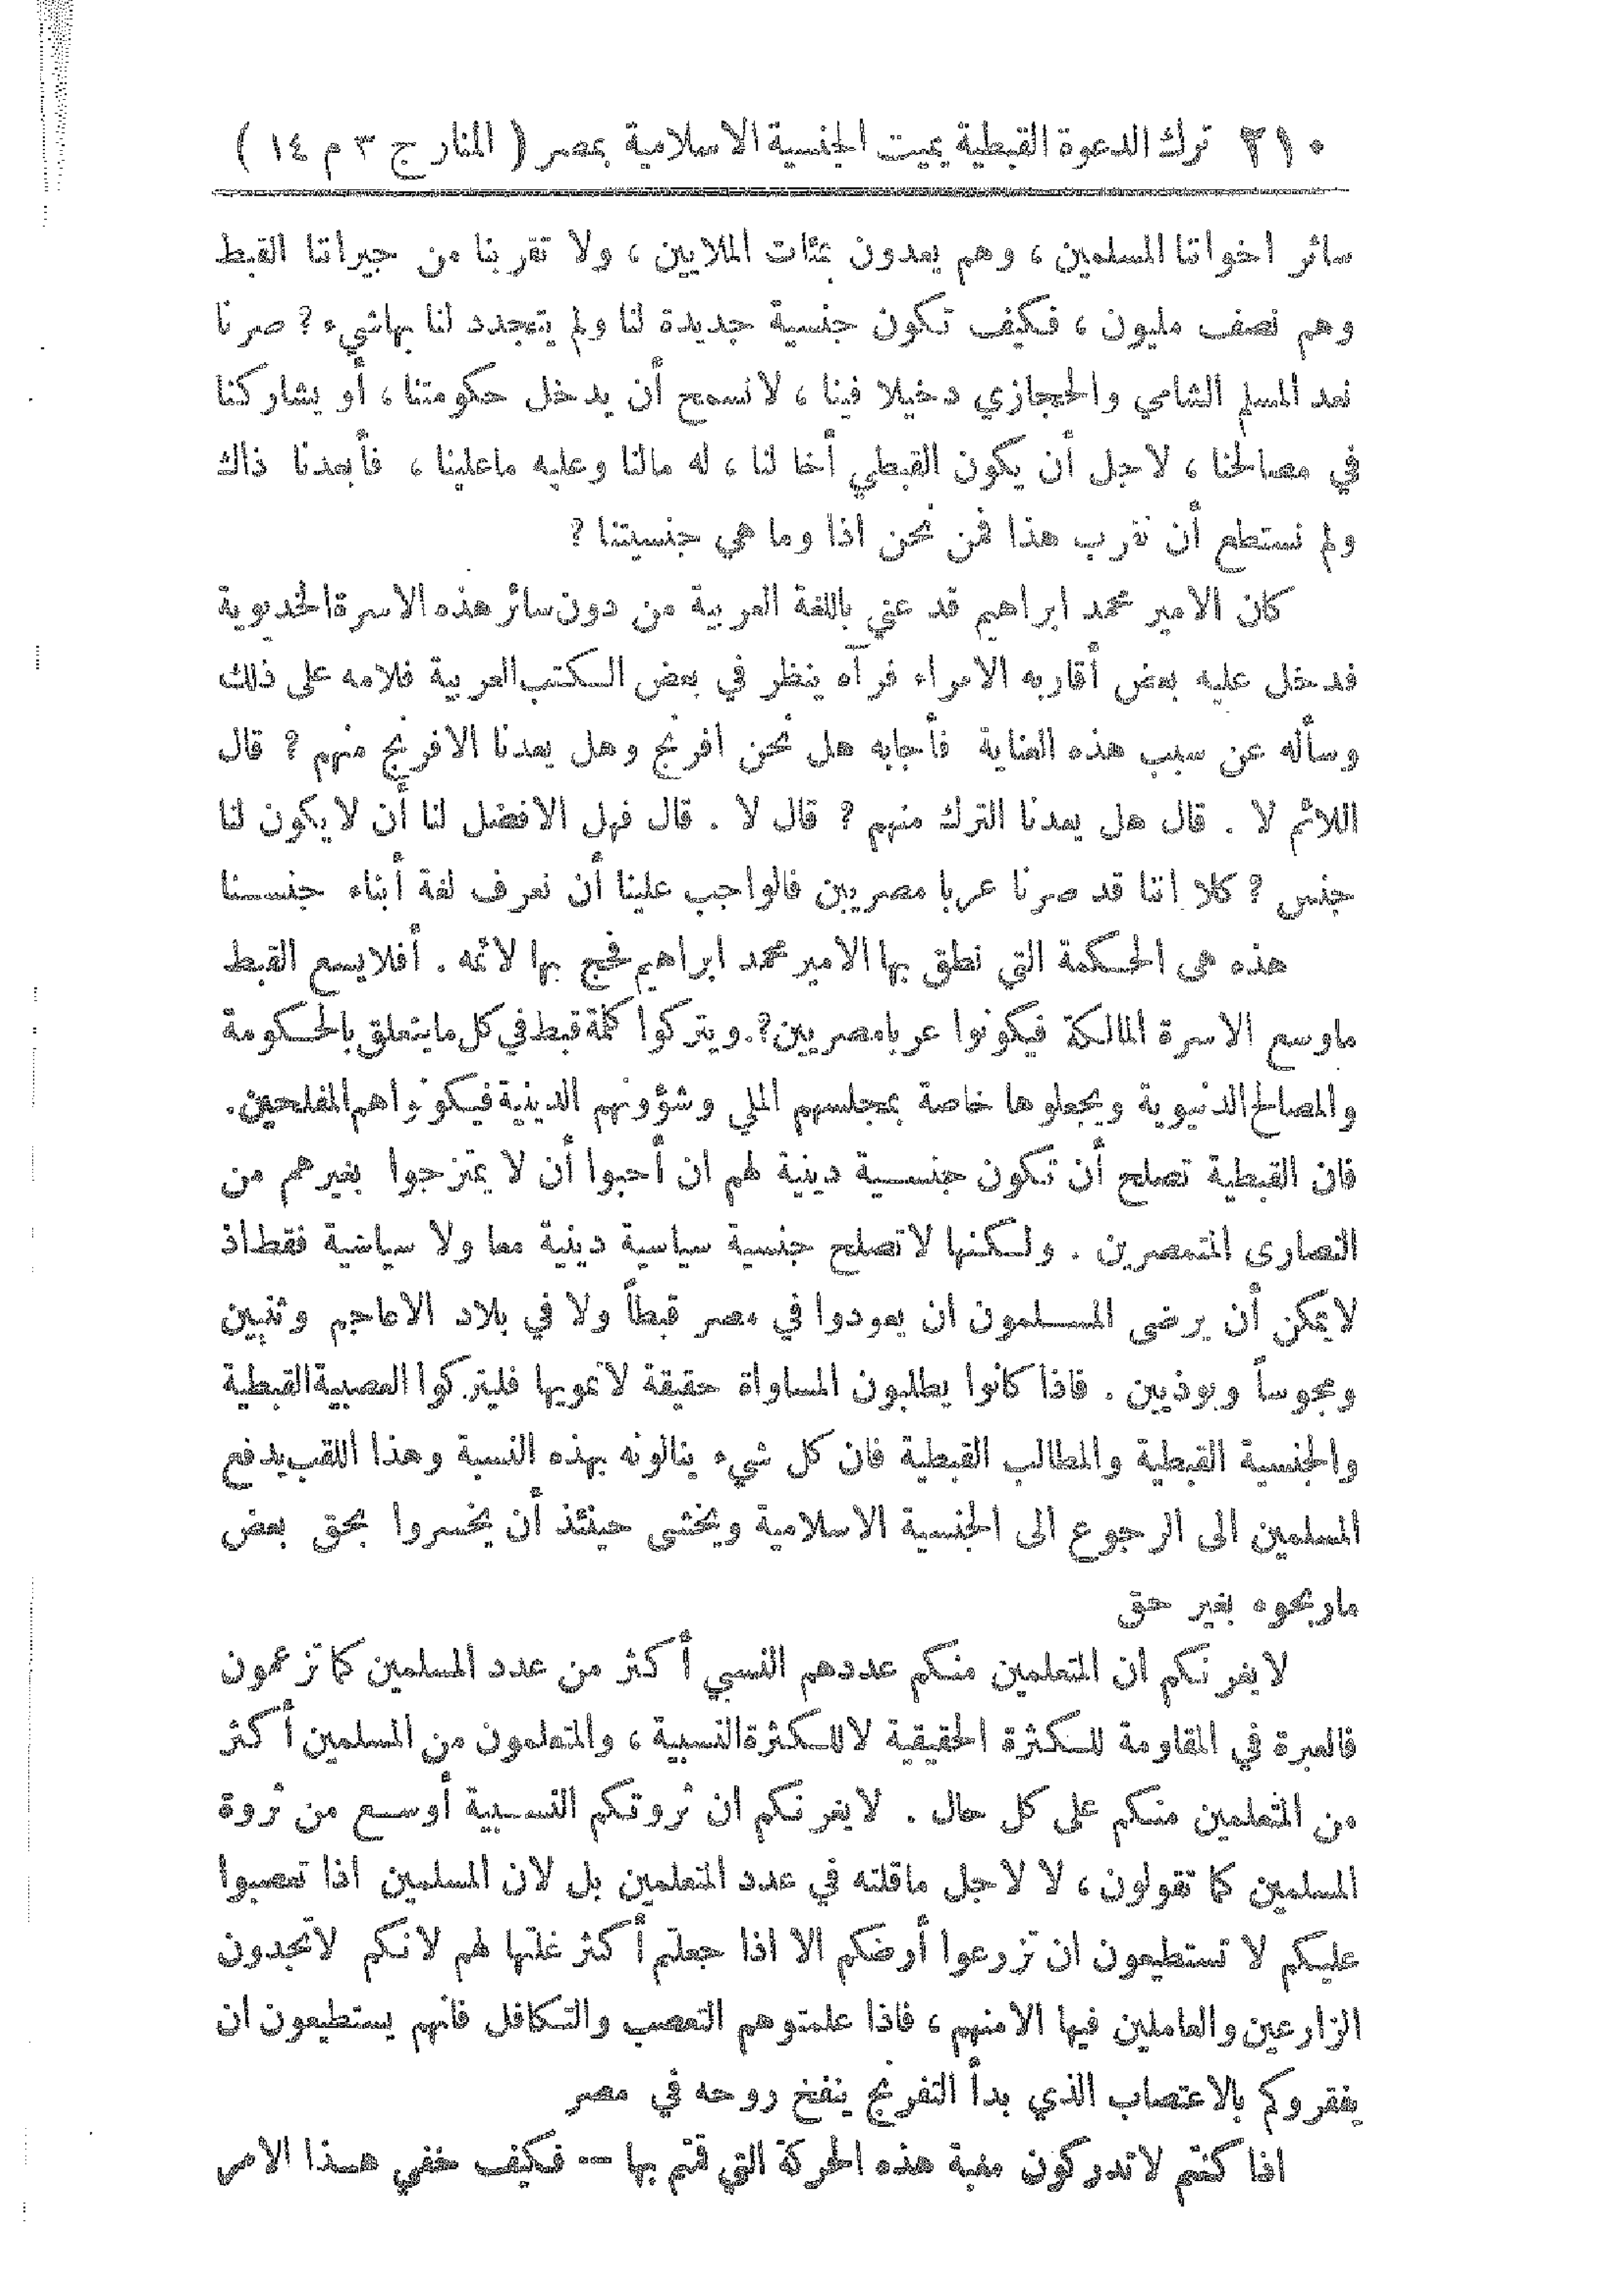 ٢١٠ ترك الدعوة القبطية يميت الجنسية الاسلامية بمصر ( المنار ج ٣ م ١٤ )
سائر اخواتنا المسلمين ، وهم يعدون بمئات الملايين ، ولا تقربنا من جيراننا القبط
وهم نصف مليون ، فكيف تكون جنسية جديدة لنا ولم يتجدد لنا بها شيء ؟ صرنا
نعد المسلم الشامي والحجازي دخيلا فينا ، لا نسمح أن يدخل حكومتنا ، أو يشاركنا
في مصالحنا ، لاجل أن يكون القبطي أخا لنا ، له مالنا وعليه ماعلينا ، فأبعدنا ذاك
ولم نستطع أن نقرب هذا فمن نحن اذا وما هي جنسيتنا ؟
كان الامير محمد ابراهيم قد عني باللغة العربية من دون سائر هذه الاسرة الخديوية
فدخل عليه بعض أقاربه الامراء فرآه ينظر في بعض الكتب العربية فلامه على ذلك
وسأله عن سبب هذه العناية فأجابه هل نحن افرنج وهل يعدنا الافرنج منهم ؟ قال
اللائم لا . قال هل يعدنا الترك منهم ؟ قال لا . قال فهل الافضل لنا أن لا يكون لنا
جنس ؟ كلا إننا قد صرنا عربا مصريين فالواجب علينا أن نعرف لغة أبناء جنسنا
هذه هى الحكمة التي نطق بها الامير محمد ابراهيم فحج بها لائمه . أفلا يسع القبط
ماوسع الاسرة المالكة فيكونوا عربا مصريين ؟. ويتركوا كلمة قبط في كل ما يتعلق بالحكومة
والمصالح الدنيوية ويجعلوها خاصة بمجلسهم الملي وشؤونهم الدينية فيكونوا هم المفلحين.
فان القبطية تصلح أن تكون جنسية دينية لهم ان أحبوا أن لا يمتزجوا بغيرهم من
النصارى المتمصرين . ولكنها لا تصلح جنسية سياسية دينية معا ولا سياسية فقط اذ
لايمكن أن يرضى المسلمون ان يعودوا في مصر قبطاً ولا في بلاد الاعاجم وثنيين
ومجوساً وبوذيين . فاذا كانوا يطلبون المساواة حقيقة لا تمويها فليتركوا العصبية القبطية
والجنسية القبطية والمطالب القبطية فان كل شيء ينالونه بهذه النسبة وهذا اللقب يدفع
المسلمين الى الرجوع الى الجنسية الاسلامية ويخشى حينئذ أن يخسروا بحق بعض
ماربحوه بغير حق
لا يغرنكم ان المتعلمين منكم عددهم النسبي أكثر من عدد المسلمين كما تزعمون
فالعبرة في المقاومة للكثرة الحقيقية لا للكثرة النسبية ، والمتعلمون من المسلمين أكثر
من المتعلمين منكم على كل حال . لا يغرنكم ان ثروتكم النسبية أوسع من ثروة
المسلمين كما تقولون ، لا لاجل ماقلته في عدد المتعلمين بل لان المسلمين اذا تعصبوا
عليكم لا تستطيعون ان تزرعوا أرضكم الا اذا جعلتم أكثر غلتها لهم لانكم لاتجدون
الزارعين والعاملين فيها الامنهم ، فاذا علمتوهم التعصب والتكافل فانهم يستطيعون ان
يفقروكم بالاعتصاب الذي بدأ التفرنج ينفخ روحه في مصر
اذا كنتم لا تدركون مغبة هذه الحركة التي قتم بها -- فكيف خفي هذا الامر